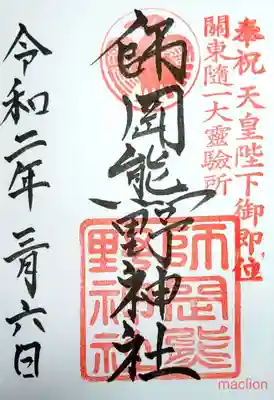 奉祝 天皇陛下御即位
關東随一大靈驗所
師岡熊野神社
師岡熊
野神社
令和二年 三月六日
maclion